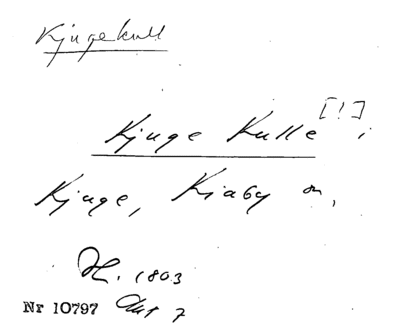 Kjugekull
Kjuge Kulle [!] i
Kjuge, Kiaby sn,
H. 1803
Nr 10797 Akt 7